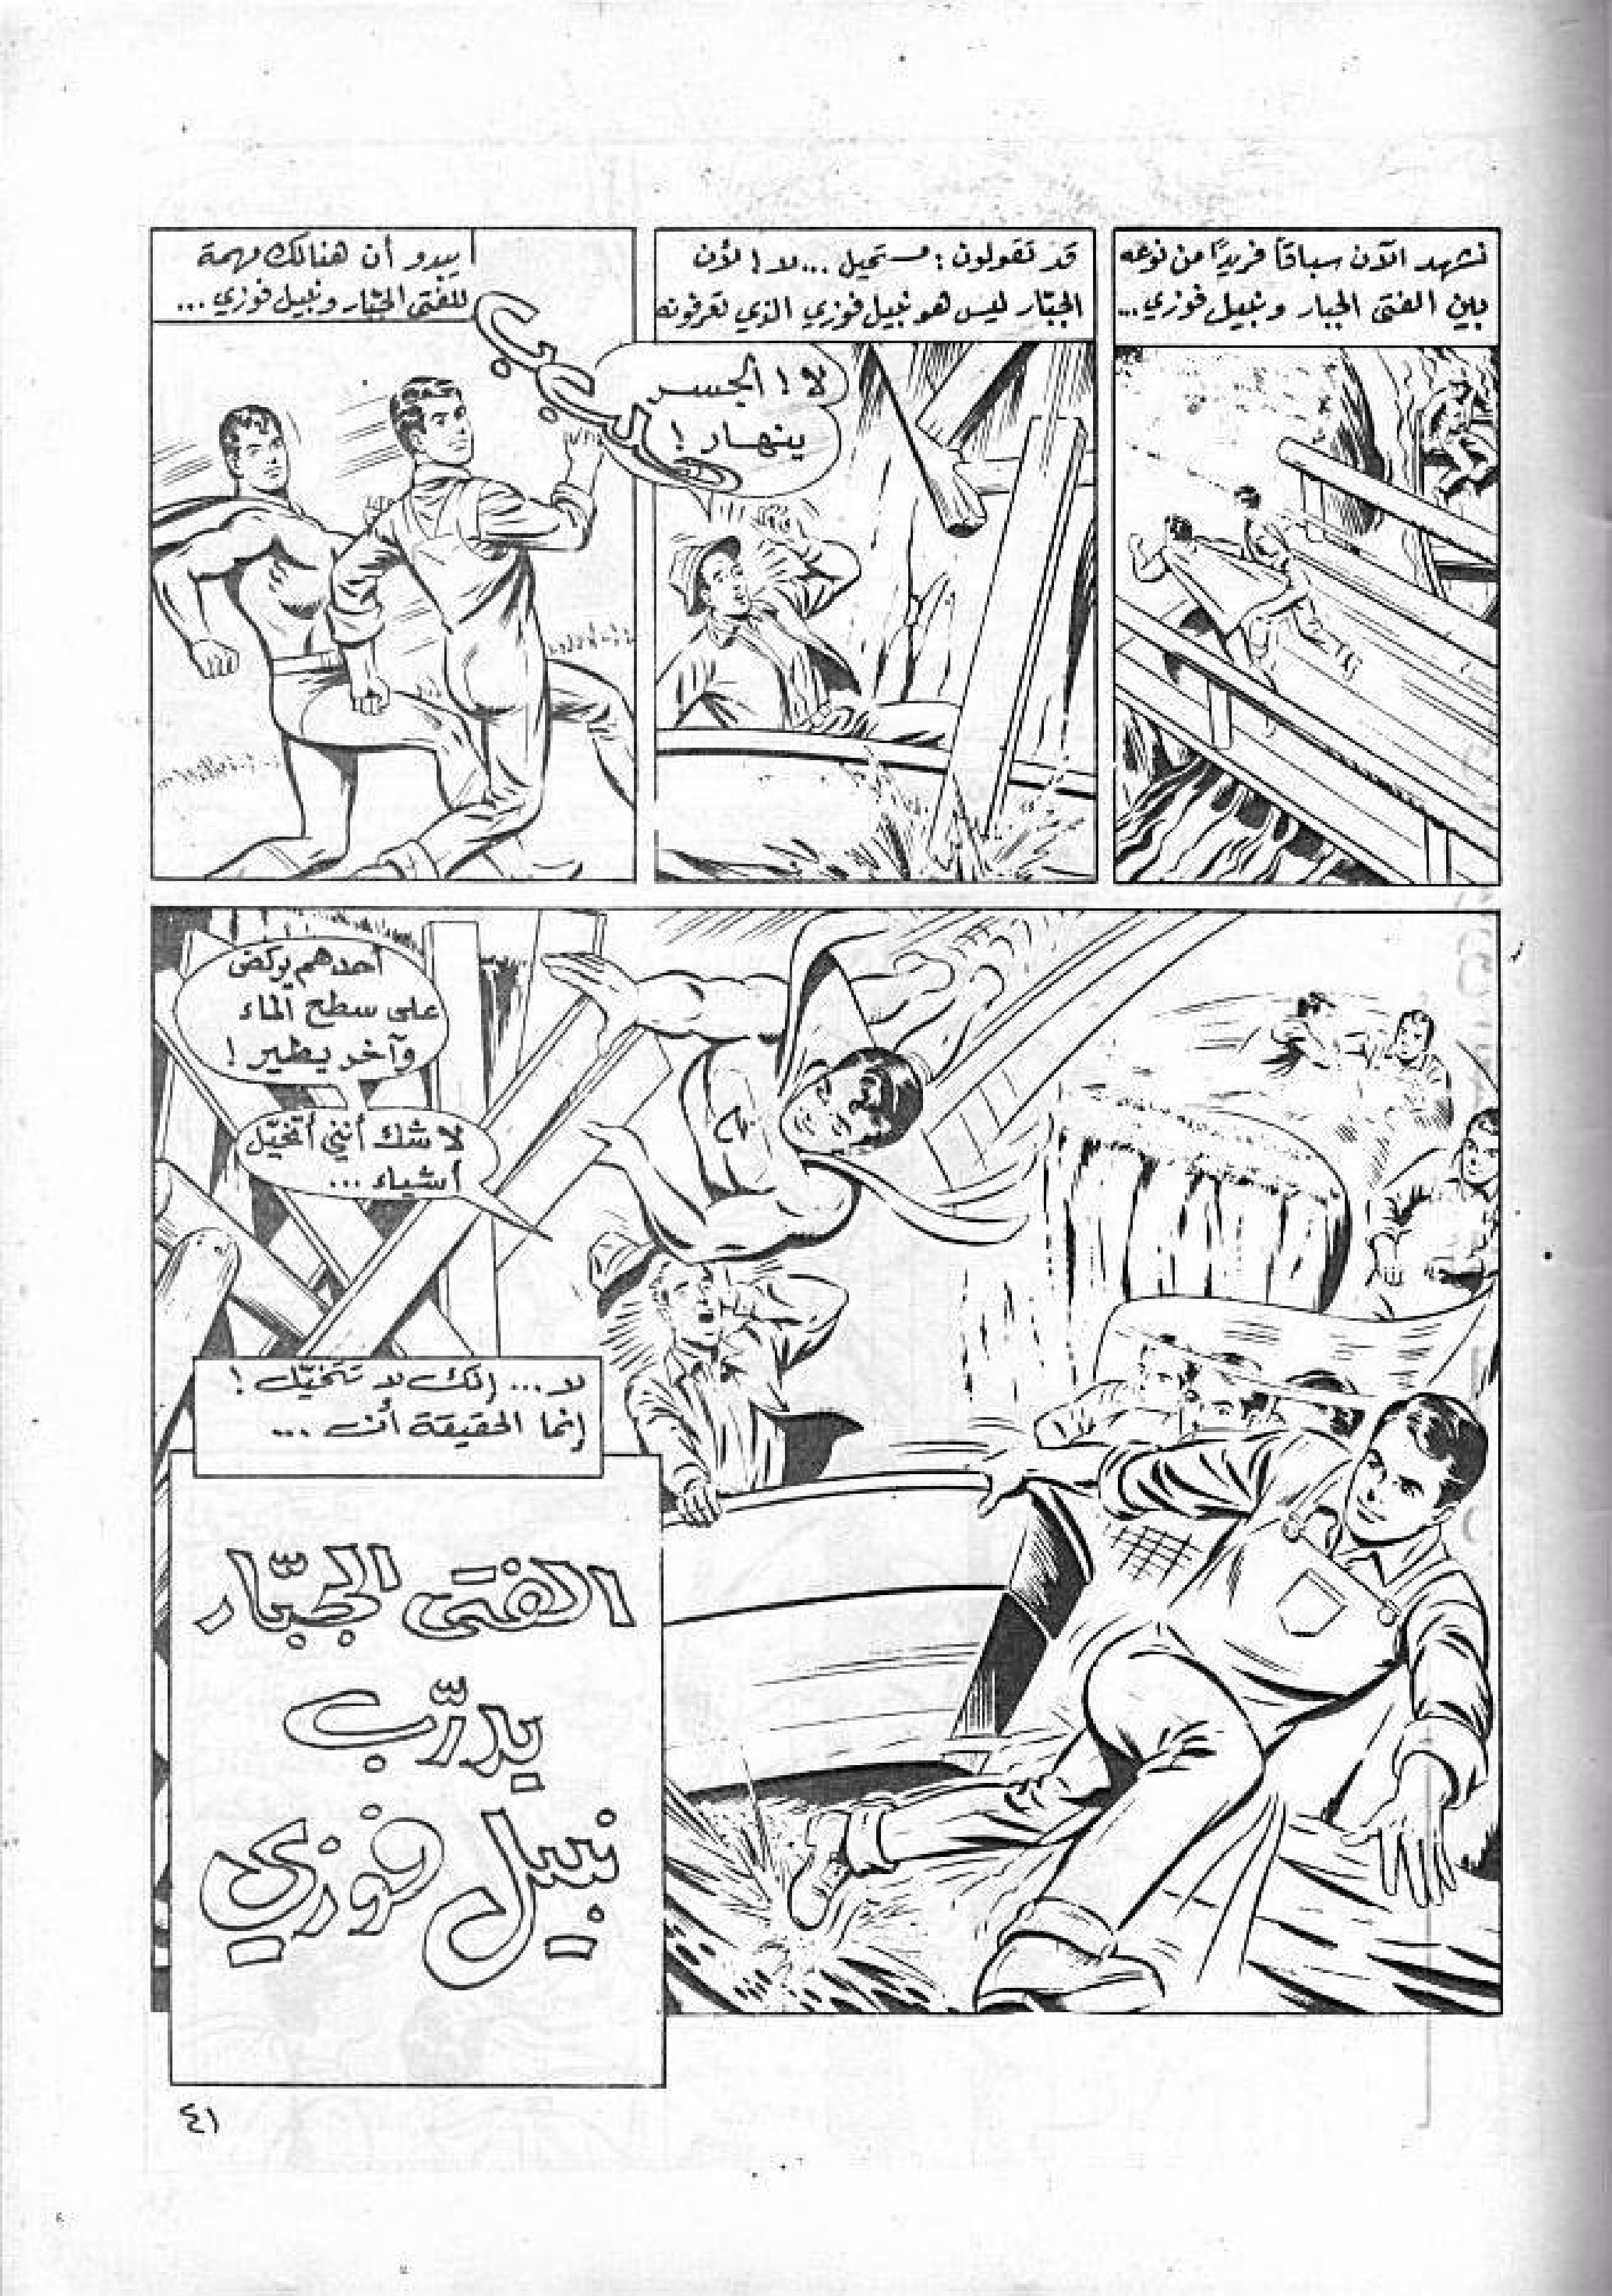 نشهد الآن سباقاً فريدًا من نوعه
بين الفتى الجبار ونبيل فوزي...
قد تقولون: مستحيل... لا! لأن
الجبّار ليس هو نبيل فوزي الذي تعرفونه
لا! الجسر
ينهار!
يبدو أن هنالك مهمة
للفتى الجبّار ونبيل فوزي...
أحدهم يركض
على سطح الماء
وآخر يطير!
لا شك أنني أتخيّل
أشياء...
لا... إنك لا تتخيّل!
إنما الحقيقة أن...
الفتى الجبّار
يدرّب
نبيل فوزي
٤١